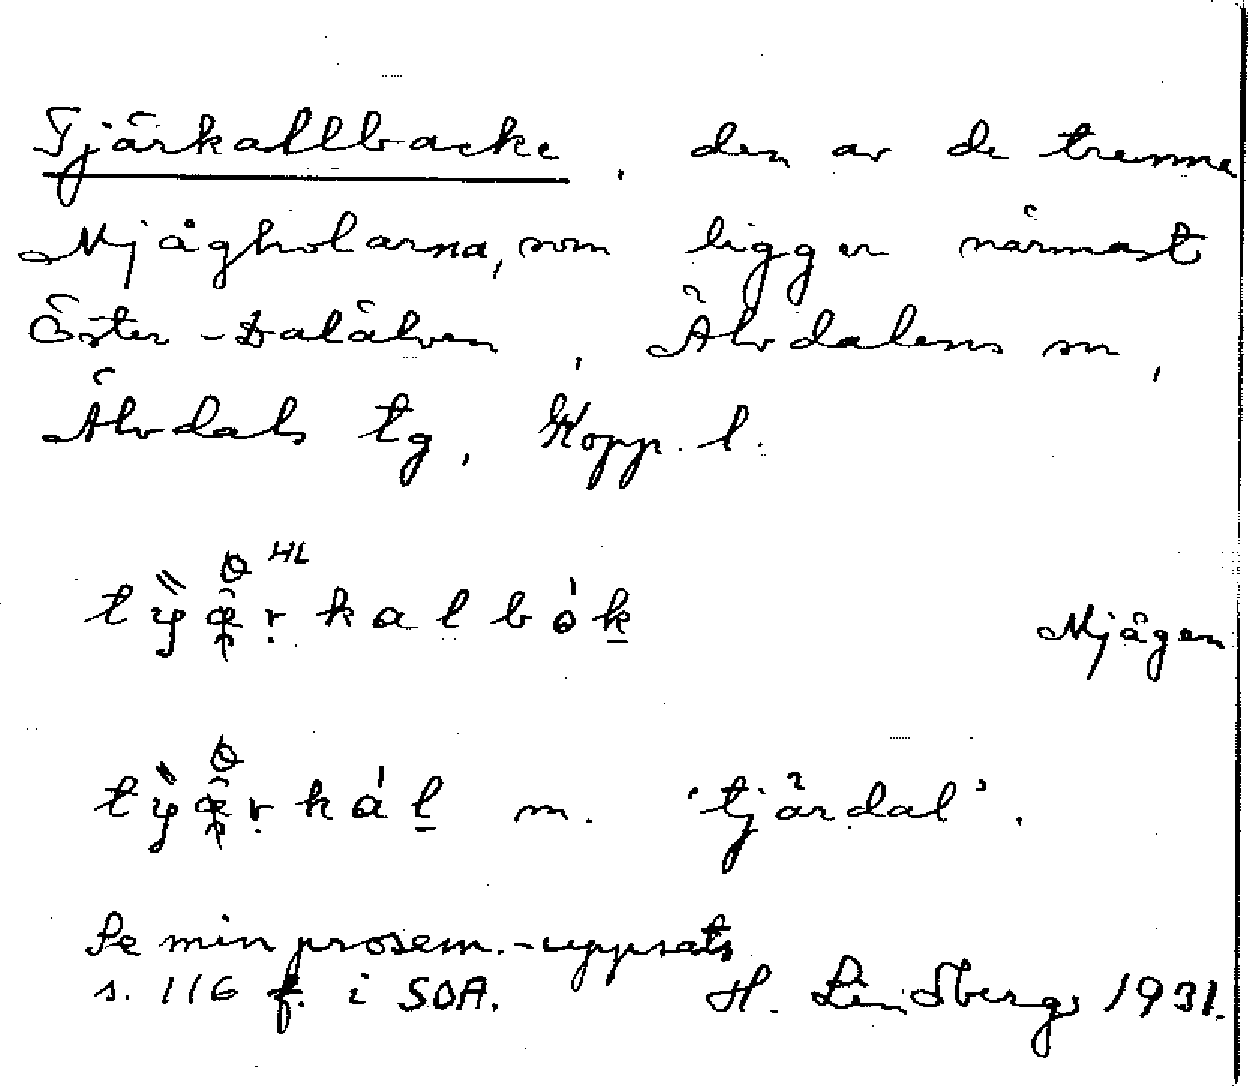 Tjärkallbacke, den av de trenne
Mjågholarna, som ligger närmast
Öster-Dalälven, Älvdalens sn,
Älvdals tg, Kopp. l.
HL
kalbók
Mjågen
kál m. 'tjärdal'.
Se min prosem.-uppsats
s. 116 f. i SOA.
H. Lindberg 1931.